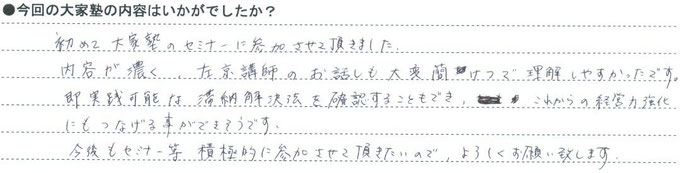 ●今回の大家塾の内容はいかがでしたか？
初めて大家塾のセミナーに参加させて頂きました。
内容が濃く、左京講師のお話しも大変簡けつで理解しやすかったです。
即実践可能な滞納解決法を確認することもでき、これからの経営力強化
にもつなげる事ができそうです。
今後もセミナー等積極的に参加させて頂きたいので、よろしくお願い致します。